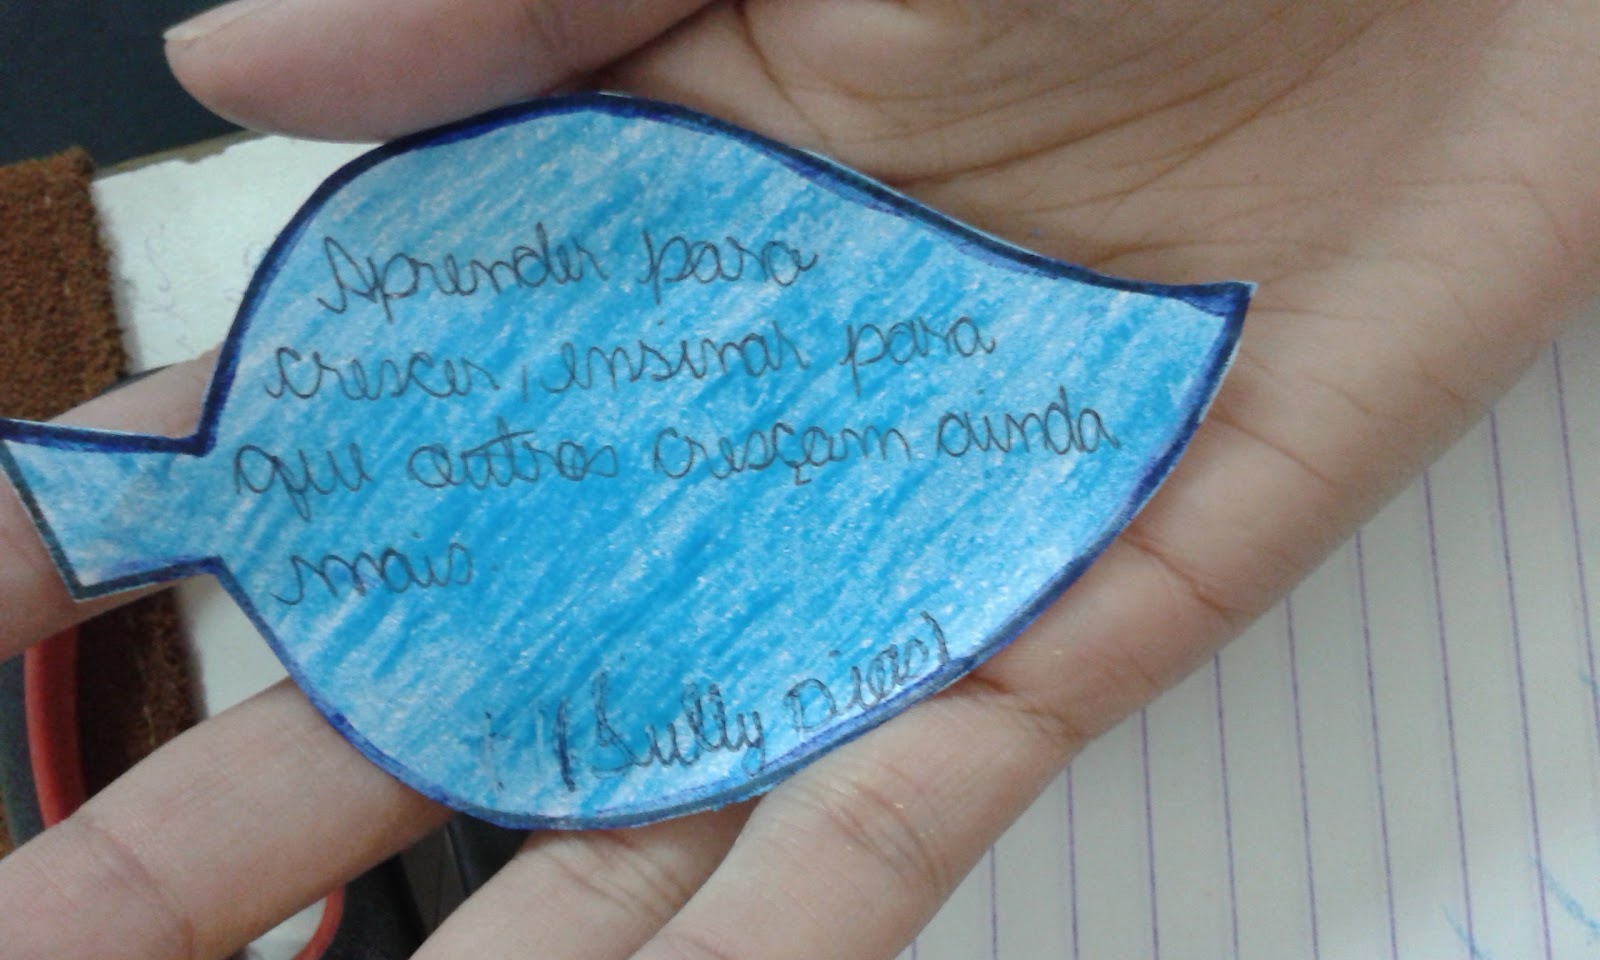 Aprender para
crescer, ensinar para
que outros cresçam ainda
mais.